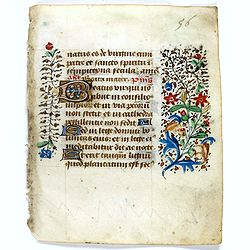 56
natus es de virgine cum
patre et sancto spiritu i
sempiterna secula amē
maria mater
Beatus vir qui nō
abiit in consilio
impiorum et in via peccatorū
non stetit et in cathedra
pestilentie non sedit
Sed in lege domini volun
tas eius et in lege eius me
ditabitur die ac nocte
Et erit tanquam lignū
quod plantatum est sec